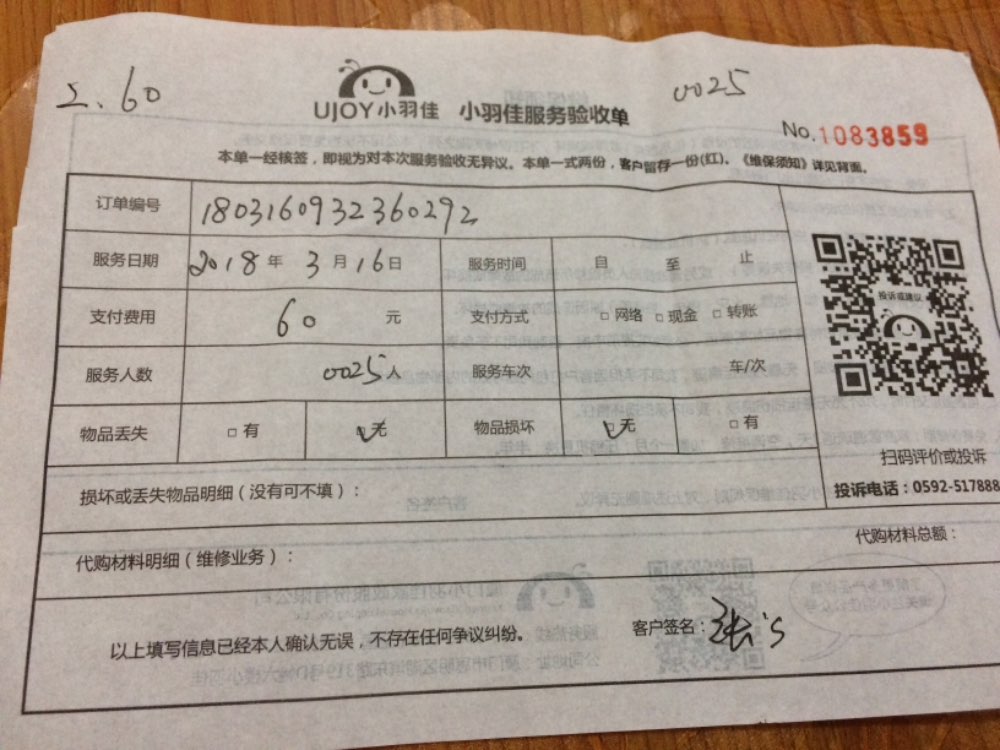 I. 60
0025
UJOY小羽佳 小羽佳服务验收单
No.1083859
本单一经核签，即视为对本次服务验收无异议。本单一式两份，客户留存一份(红)。《维保须知》详见背面。
订单编号 1803160932360292
服务日期 2018年3月16日 服务时间 自 至 止
支付费用 60 元 支付方式 □网络 □现金 □转账
服务人数 0025人 服务车次 车/次
物品丢失 □有 □无 物品损坏 □无 □有
投诉或建议
扫码评价或投诉
投诉电话：0592-517888
损坏或丢失物品明细（没有可不填）：
代购材料明细（维修业务）：
代购材料总额：
以上填写信息已经本人确认无误，不存在任何争议纠纷。
客户签名：